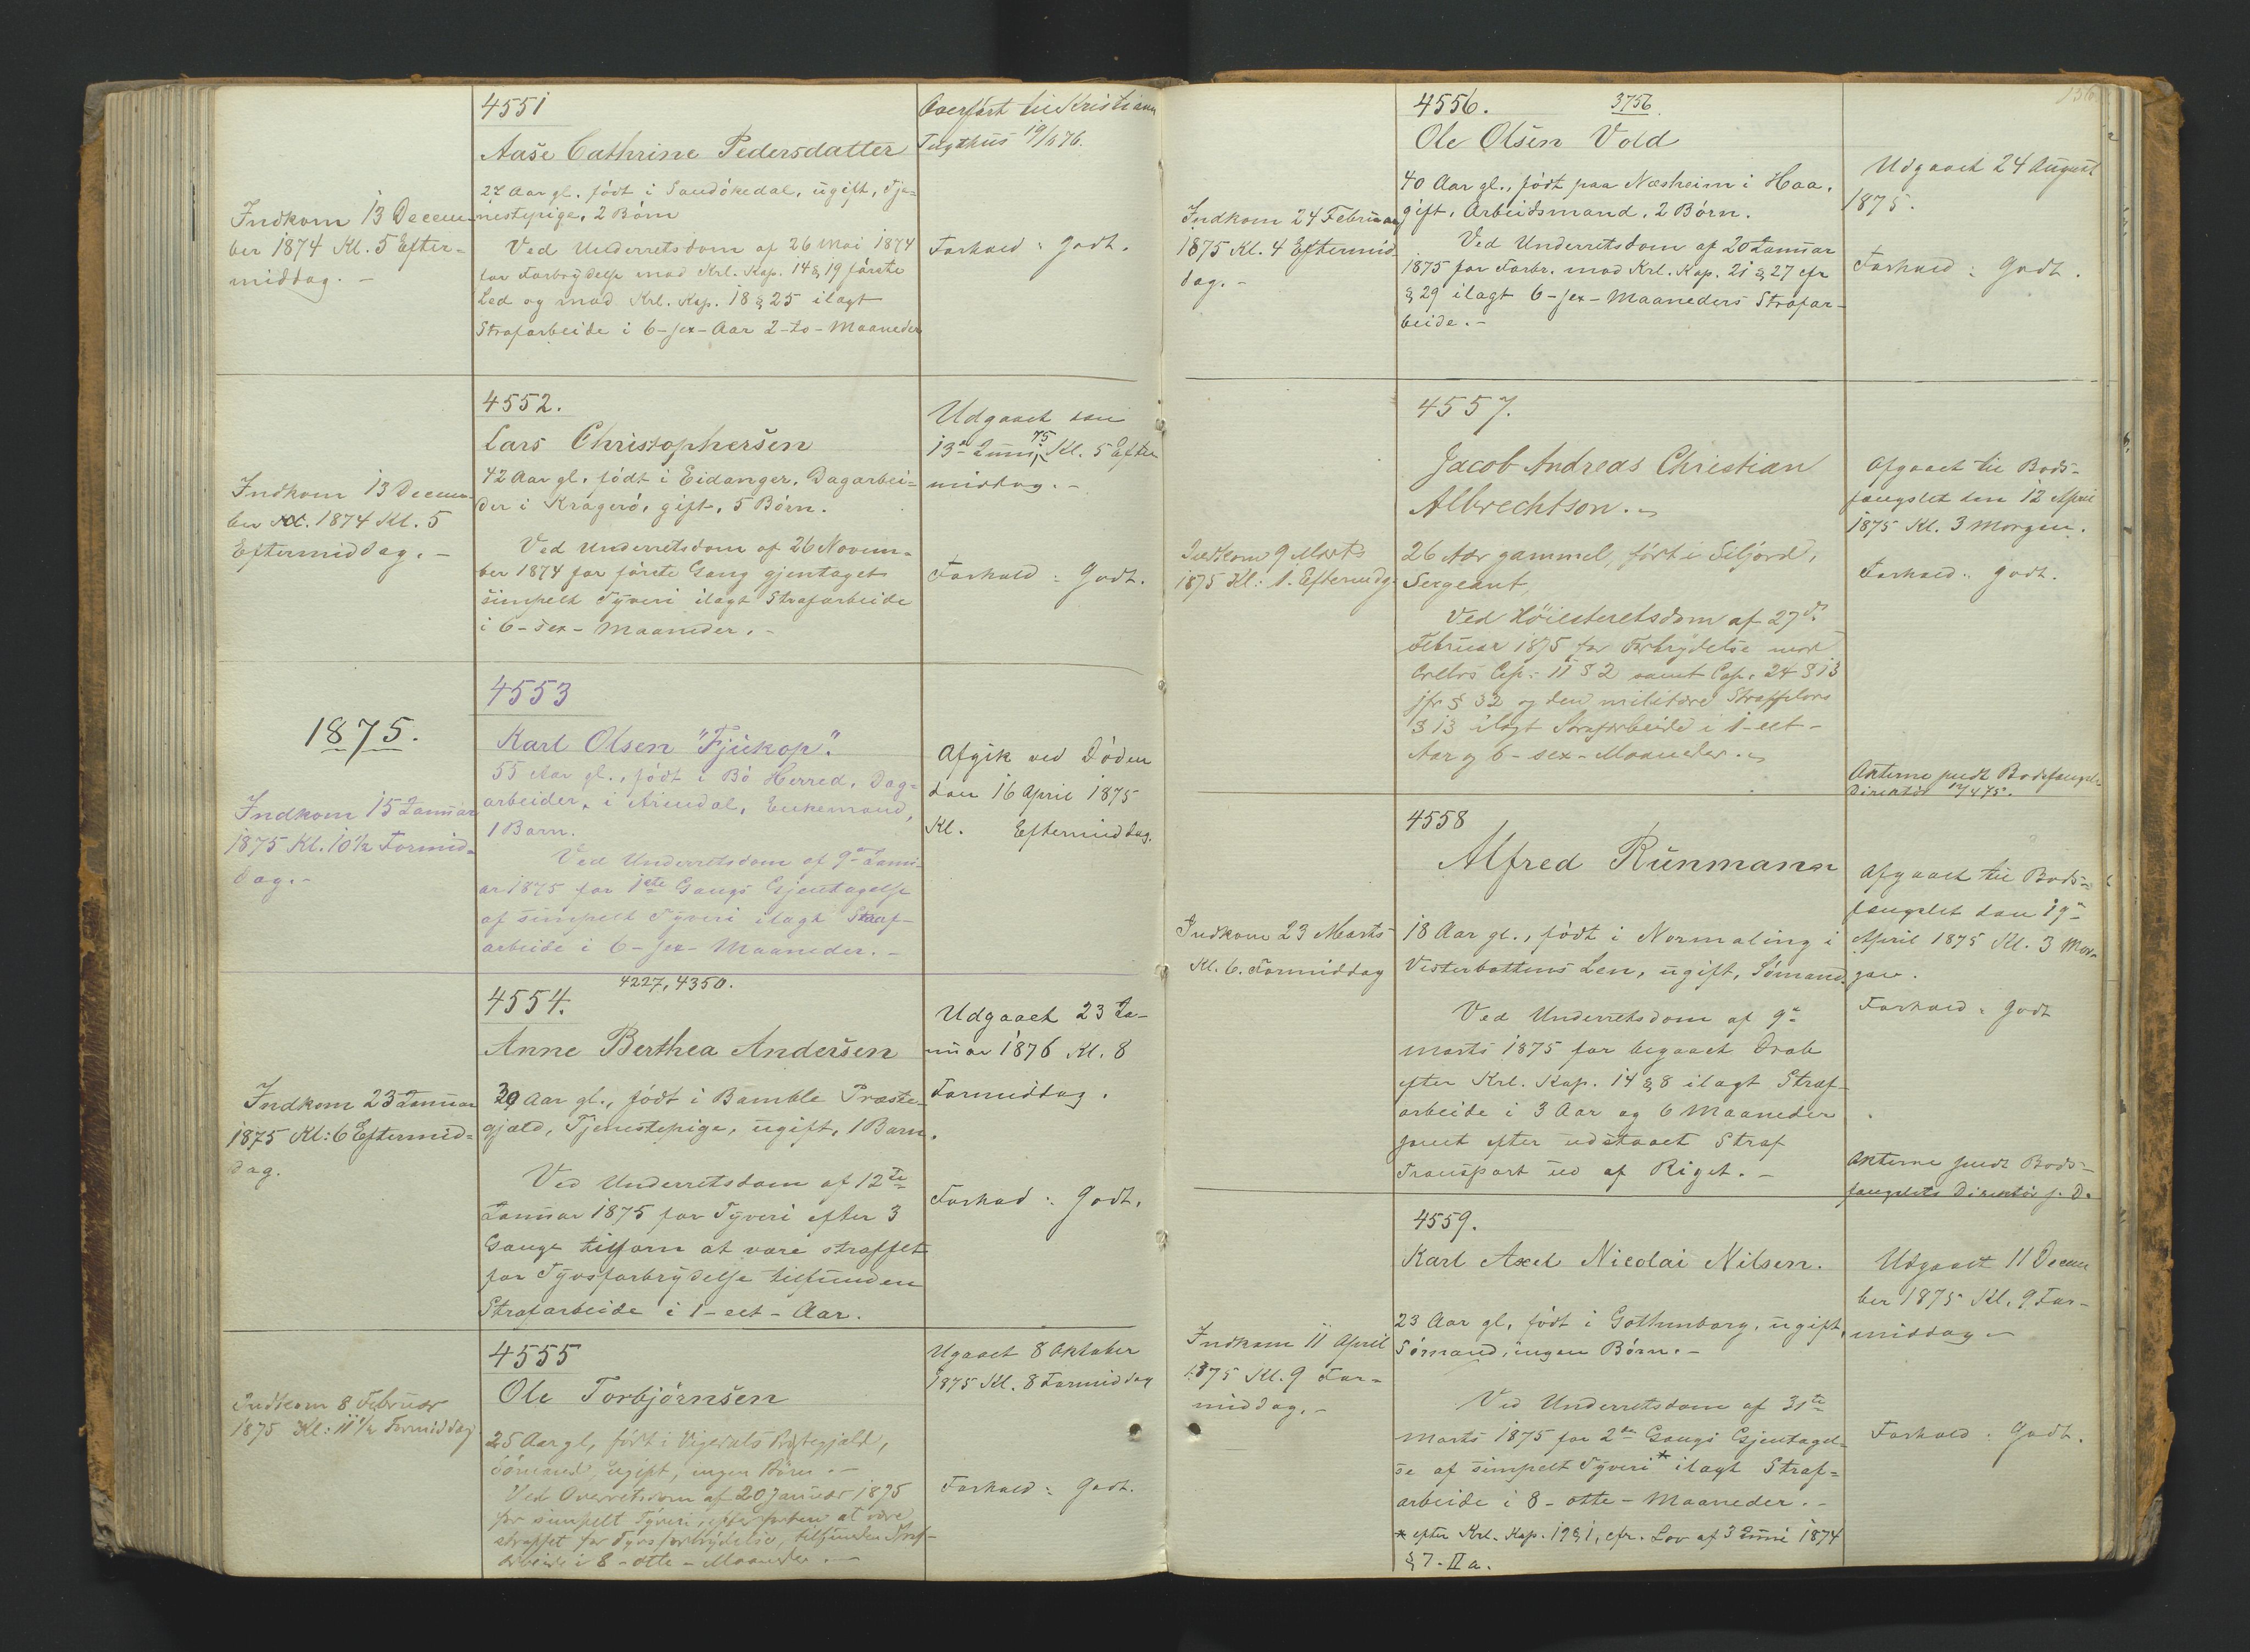 4551
Aase Cathrine Pedersdatter
Overført til Kristiania
Tugthus 19/1 76.
Indkom 13 Decem-
ber 1874 Kl. 5 Efter-
middag. -
27 Aar gl. født i Sandökedal, ugift, Tje-
nestepige, 2 Børn
Ved Underretsdom af 26 Mai 1874
for Forbrydelse mod Krl. Kap. 14 § 19 første
Led og mod Krl. Kap. 18 § 25 ilagt
Strafarbeide i 6 - sex - Aar 2 - to - Maaneder
Forhold: Godt.
4552.
Lars Christophersen
Indkom 13 Decem-
ber 1874 Kl. 5
Eftermiddag. -
42 Aar gl. født i Eidanger, Dagarbei-
der i Kragerø, gift, 5 Børn.
Ved Underretsdom af 26 Novem-
ber 1874 for første Gang gjentaget
simpelt Tyveri ilagt Strafarbeide
i 6 - sex - Maaneder. -
Udgaaet den
13de Juni 75 Kl. 5 Efter
middag. -
Forhold: Godt.
1875.
4553
Karl Olsen "Fjukop".
Indkom 15 Januar
1875 Kl. 10 1/2 Formid-
dag. -
55 Aar gl., født i Bø Herred, Dag-
arbeider, i Arendal, Enkemand,
1 Barn.
Ved Underretsdom af 9de Janu-
ar 1875 for 1ste Gangs Gjentagelse
af simpelt Tyveri ilagt Straf-
arbeide i 6 - sex - Maaneder. -
Afgik ved Døden
den 16 April 1875
Kl. Eftermiddag.
4554. 4227, 4350.
Anne Berthea Andersen
Indkom 23 Januar
1875 Kl: 6 Eftermid-
dag.
39 Aar gl., født i Bamble Præste-
gjæld, Tjenestepige, ugift, 1 Barn.
Ved Underretsdom af 12te
Januar 1875 for Tyveri efter 3
Gange tilforn at være straffet
for Tyvsforbrydelse tilfunden
Strafarbeide i 1 - eet - Aar.
Udgaaet 23 Ja-
nuar 1876 Kl. 8
Formiddag.
Forhod: Godt.
4555
Ole Torbjørnsen
Indkom 8 Februar
1875 Kl: 11 1/2 Formiddag
25 Aar gl, født i Vigedals Præstegjæld,
Sömand, ugift, ingen Børn. -
Ved Overretsdom af 20 Januar 1875
for simpelt Tyveri, efter forhen at være
straffet for Tyvsforbrydelse, tilfunden Straf-
arbeide i 8 - otte - Maaneder. -
Ugaaet 8 Oktober
1875 Kl. 8 Formiddag
Forhold: Godt.
136
4556. 3756.
Ole Olsen Vold
Indkom 24 Februar
1875 Kl. 4 Eftermid-
dag. -
40 Aar gl., født paa Næsheim i Haa,
gift, Arbeidsmand, 2 Børn.
Ved Underretsdom af 20 Januar
1875 for Forbr. mod Krl. Kap. 21 § 27 cfr
§ 29 ilagt 6 - sex - Maaneders Strafar-
beide. -
Udgaaet 24 August
1875.
Forhold: Godt.
4557.
Jacob Andreas Christian
Albrechtson.
Indkom 9 Marts
1875 Kl: 1. Eftermdg.
26 Aar gammel, født i Siljord,
Sergeant,
Ved Höiesteretsdom af 27d.
Februar 1875 for Forbrydelse mod
Crllvs Cap: 11 § 2 samt Cap. 24 § 13
jfr § 32 og den militære Straffelovs
§ 13 ilagt Strafarbeide i 1 - eet -
Aar og 6 - sex - Maaneder.
Afgaaet til Bods-
fængslet den 12 April
1875 Kl. 3 Morgen.
Forhold: Godt.
Akterne sendt Bodsfængslets
Direktør 12/4 75.
4558
Alfred Runmann
Indkom 23 Marts
Kl. 6. Formiddag
18 Aar gl., født i Normaling i
Vesterbottens Len, ugift, Sömand.
Ved Underretsdom af 9de
Marts 1875 for begaaet Drab
efter Krl. Kap. 14 § 8 ilagt Straf-
arbeide i 3 Aar og 6 Maaneder
samt efter udstaaet Straf
Transport ud af Riget. -
Afgaaet til Bods-
fængslet den 19de
April 1875 Kl. 3 Mor-
gen.
Forhold: Godt
Akterne sendt Bods-
fængslets Direktør s. D.
4559.
Karl Axel Nicolai Nilsen.
Indkom 11 April
1875 Kl. 9 For-
middag. -
23 Aar gl, født i Gothenborg, ugift,
Sömand, ingen Børn. -
Ved Underretsdom af 31te
Marts 1875 for 2den Gangs Gjentagel-
se af simpelt Tyveri * ilagt Straf-
arbeide i 8 - otte - Maaneder. -
* efter Krl. Kap. 19 § 1, cfr. Lov af 3 Juni 1874
§ 7. II a.
Udgaaet 11 Decem
ber 1875 Kl. 9 For-
middag -
Forhold: Godt.